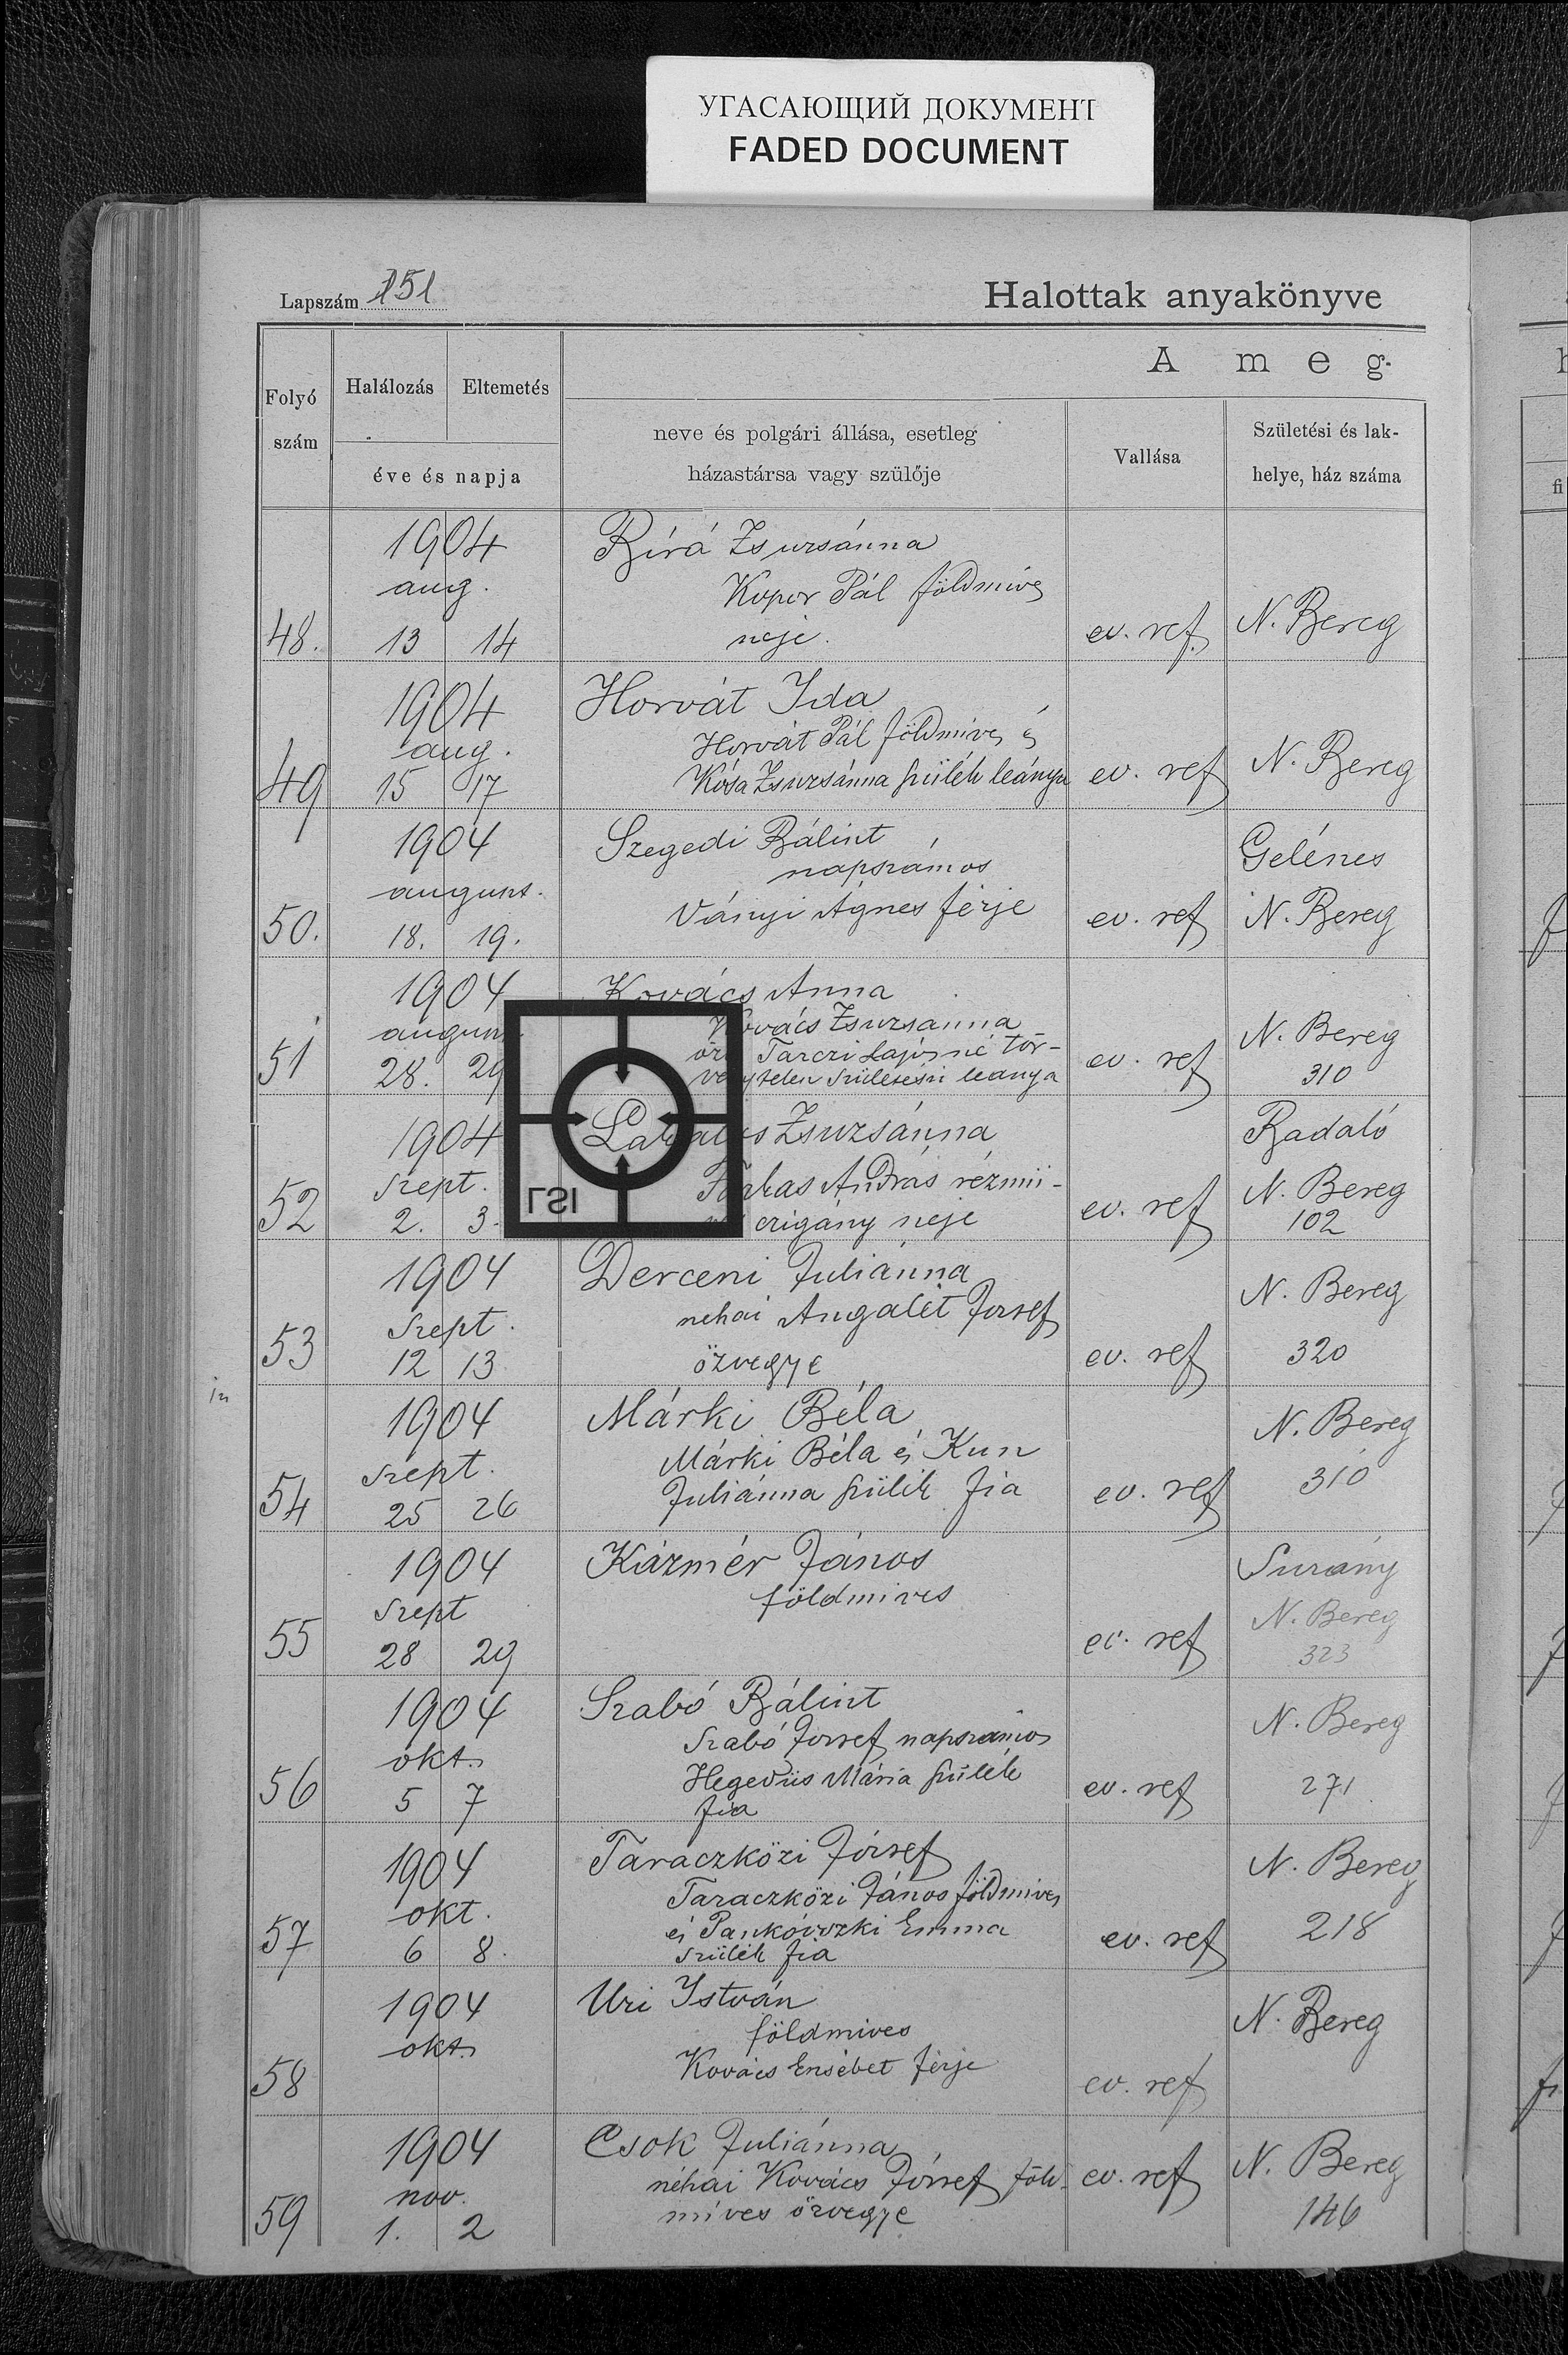 УГАСАЮЩИЙ ДОКУМЕНТ
FADED DOCUMENT
Lapszám 151
Halottak anyakönyve
A meg-
Folyó szám
Halálozás
Eltemetés
éve és napja
neve és polgári állása, esetleg
házastársa vagy szülője
Vallása
Születési és lak-
helye, ház száma
1904
aug.
48. 13 14
Bíró Zsuzsánna
Kopor Pál földmives
neje.
ev. ref.
N. Bereg
1904
aug.
49 15 17
Horvát Ida
Horvát Pál földmives és
Kósa Zsuzsánna szülék leánya
ev. ref
N. Bereg
1904
august.
50. 18. 19.
Szegedi Bálint
napszámos
Ványi Ágnes férje
ev. ref
Gelénes
N. Bereg
1904
august.
51 28. 29
Kovács Anna
Kovács Zsuzsanna
Tarczi Lajosné tör-
vénytelen születésü leánya
ev. ref
N. Bereg
310
1904
szept.
52 2. 3.
Zsuzsánna
Farkas András rézmü-
czigány neje
ev. ref
Badaló
N. Bereg
102
LSI
1904
szept.
53 12 13
Derceni Juliánna
nehai Angalét József
özvegye
ev. ref
N. Bereg
320
1904
szept.
54 25 26
Márki Béla
Márki Béla és Kun
Juliánna szülék fia
ev. ref
N. Bereg
310
1904
szept
55 28 29
Kázmér János
földmives
ev. ref
Surány
N. Bereg
323
1904
okt.
56 5 7
Szabó Bálint
Szabó József napszámos
Hegedüs Mária szülék
fia
ev. ref
N. Bereg
271
1904
okt.
57 6 8.
Taraczközi József
Taraczközi János földmives
és Pankóvszki Emma
szülék fia
ev. ref
N. Bereg
218
1904
okt.
58
Uri István
földmives
Kovács Ersébet férje
ev. ref
N. Bereg
1904
nov.
59 1. 2
Csok Juliánna
néhai Kovács József föld-
míves özvegye
ev. ref
N. Bereg
146